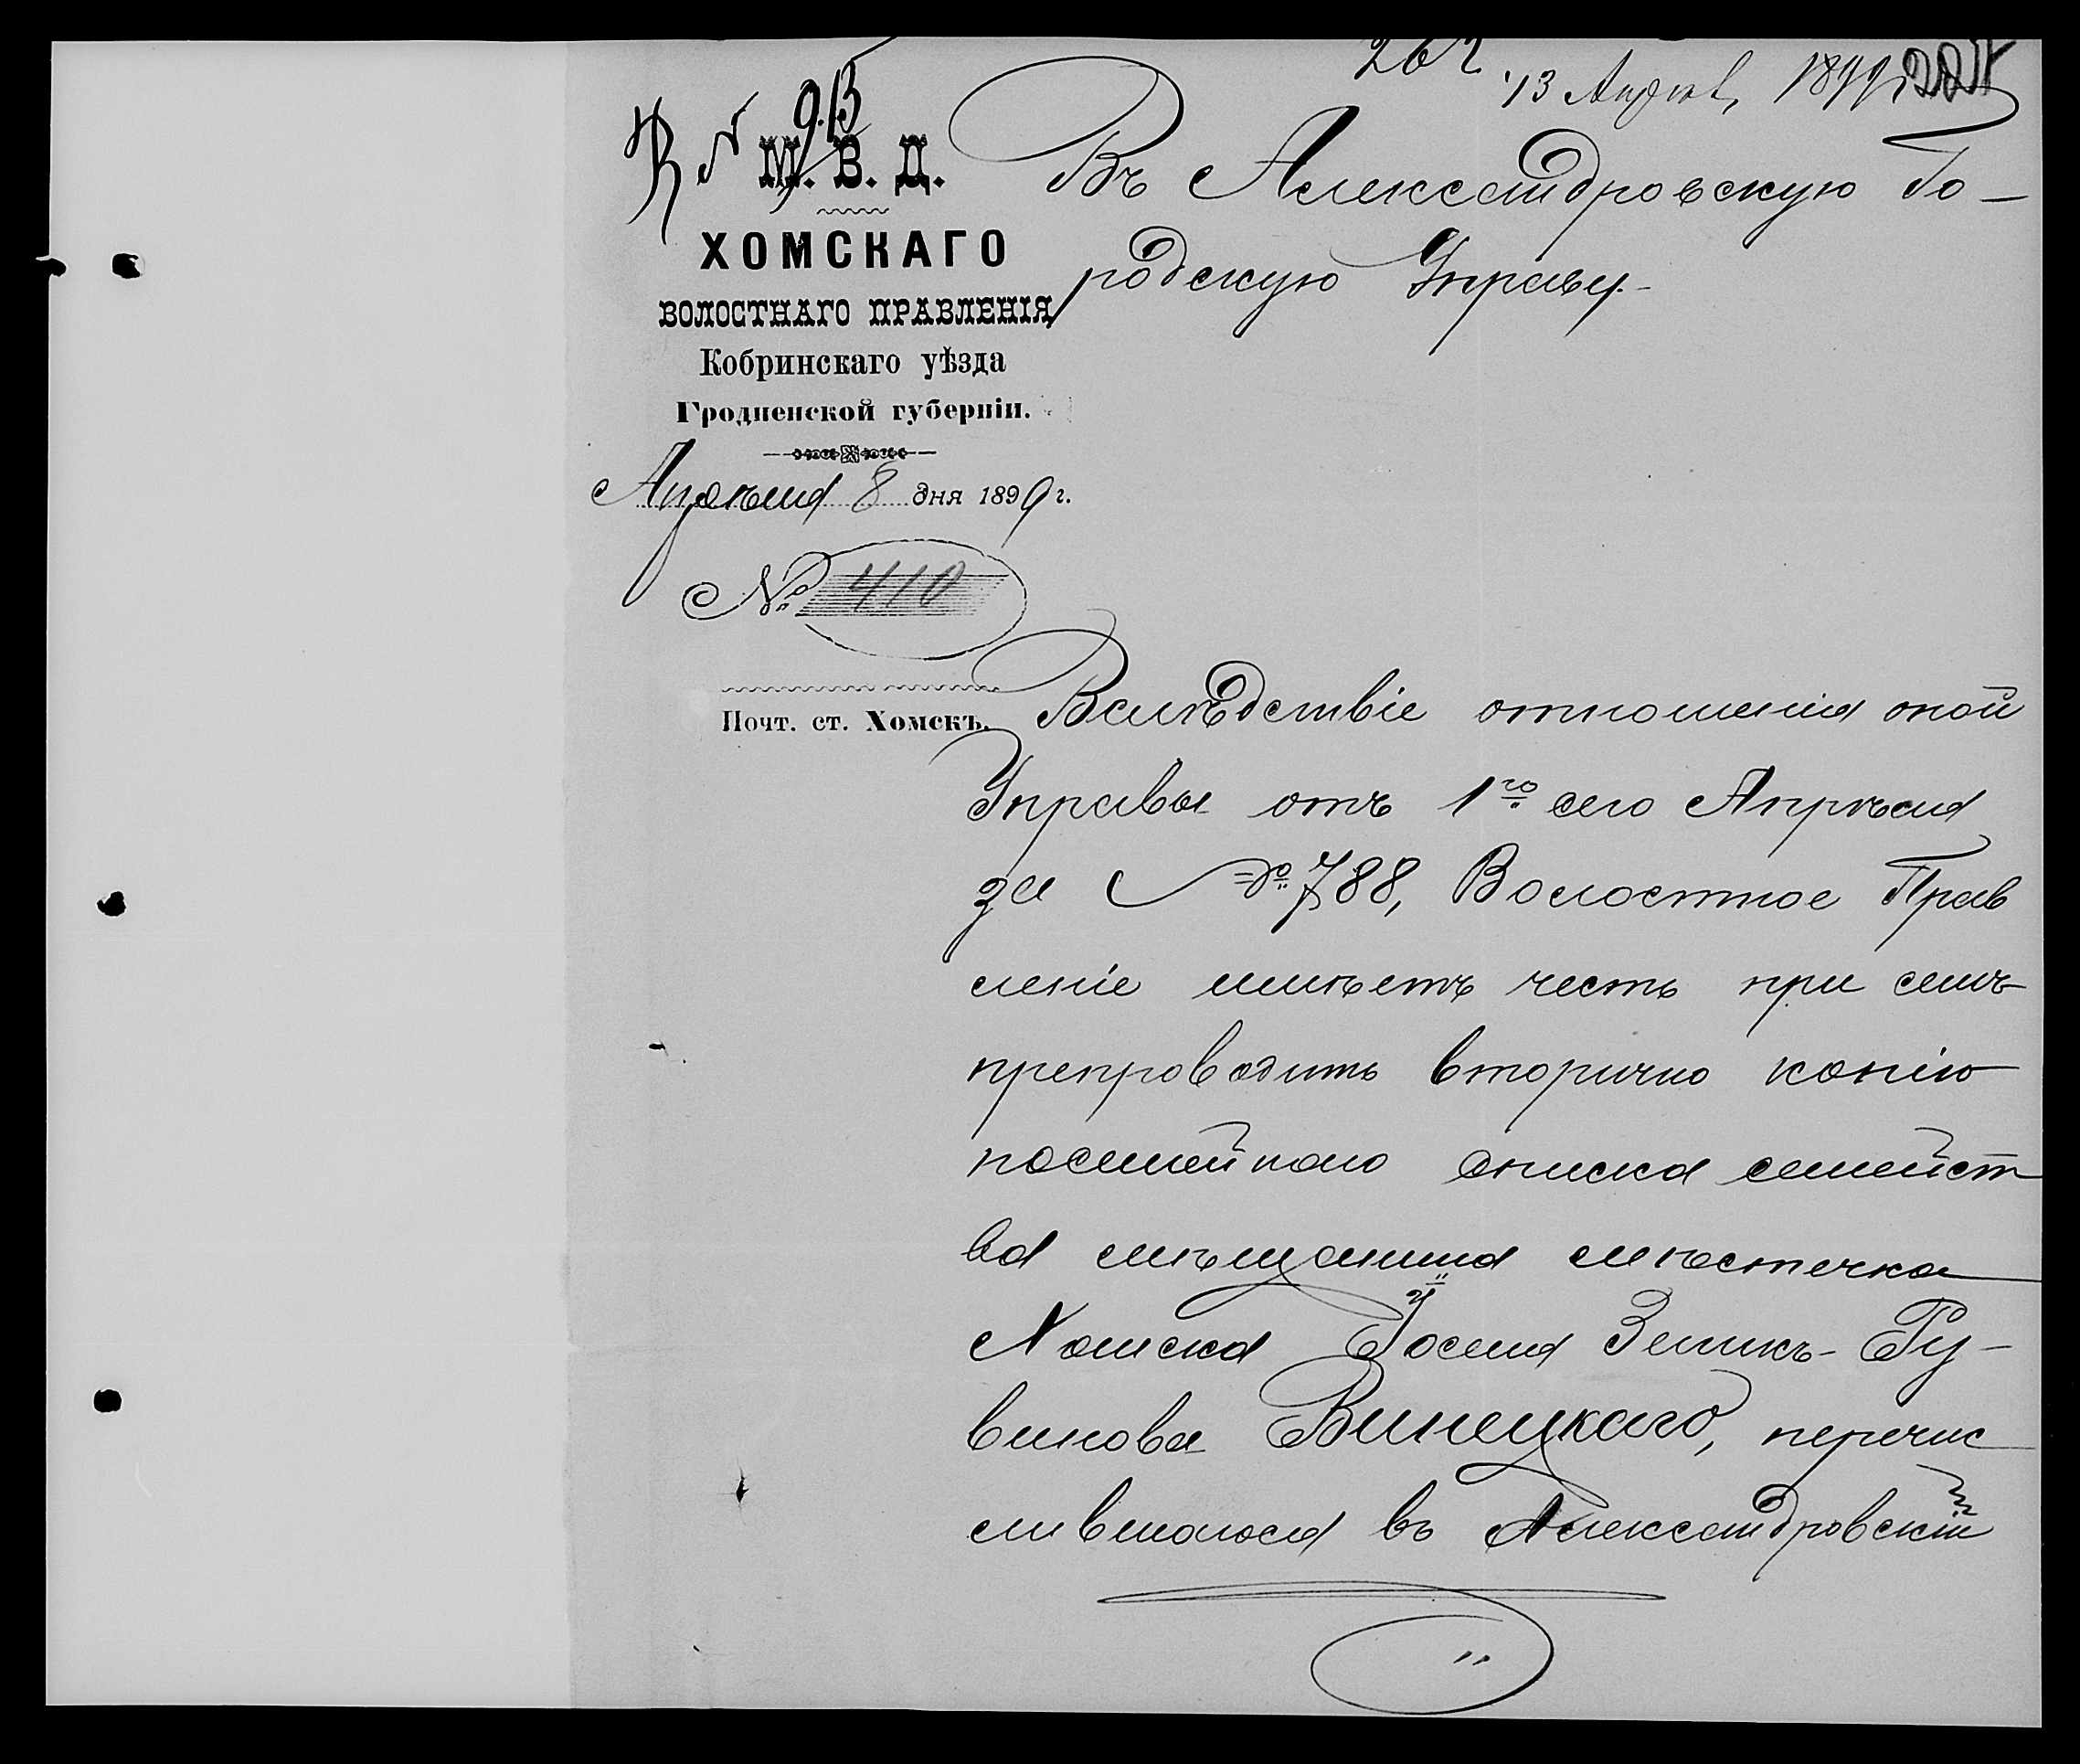 13 Апрѣл. 1899
М. В. Д.
ХОМСКАГО
ВОЛОСТНАГО ПРАВЛЕНІЯ
Кобринскаго уѣзда
Гродненской губерніи.
Апрѣля 8 дня 1899 г.
№ 410
Почт. ст. Хомскъ.
Въ Александровскую Го-
родскую Управу.-
Вслѣдствіе отношенія оной
Управы отъ 1го сего Апрѣля
за № 788, Волостное Прав
леніе имѣетъ честь при семъ
препроводить вторично копію
посемейнаго списка семейст
ва мѣщанина мѣстечка
Хомска Іоселя Зеликъ-Ру-
винова Винецкаго, перечис
лившагося въ Александровскій